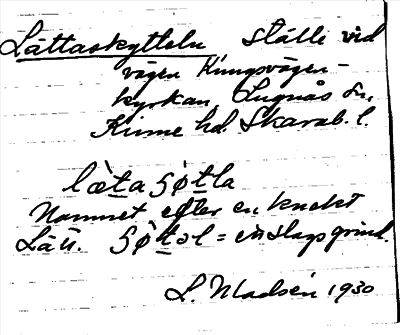 Lättaskytteln ställe vid
vägen Kungsvägen -
kyrkan, Lugnås sn,
Kinne hd. Skarab. l.
læ̀ta ʂø̀tla
Namnet efter en knekt
Lätt. ʂø̀təl = en slags grind.
L. Madsén 1930